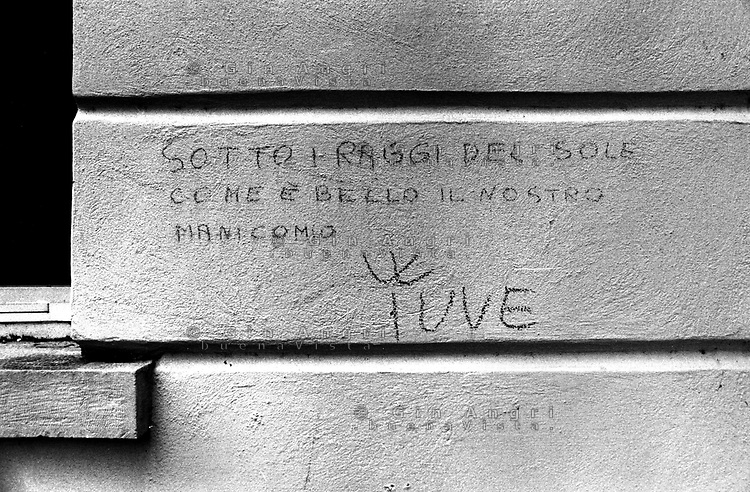 © Gin Angri
buenaVista.
SOTTO I RAGGI DEL SOLE
COME E BELLO IL NOSTRO
MANICOMIO
© Gin Angri
buenaVista.
YUVE
© Gin Angri
buenaVista.
© Gin Angri
buenaVista.